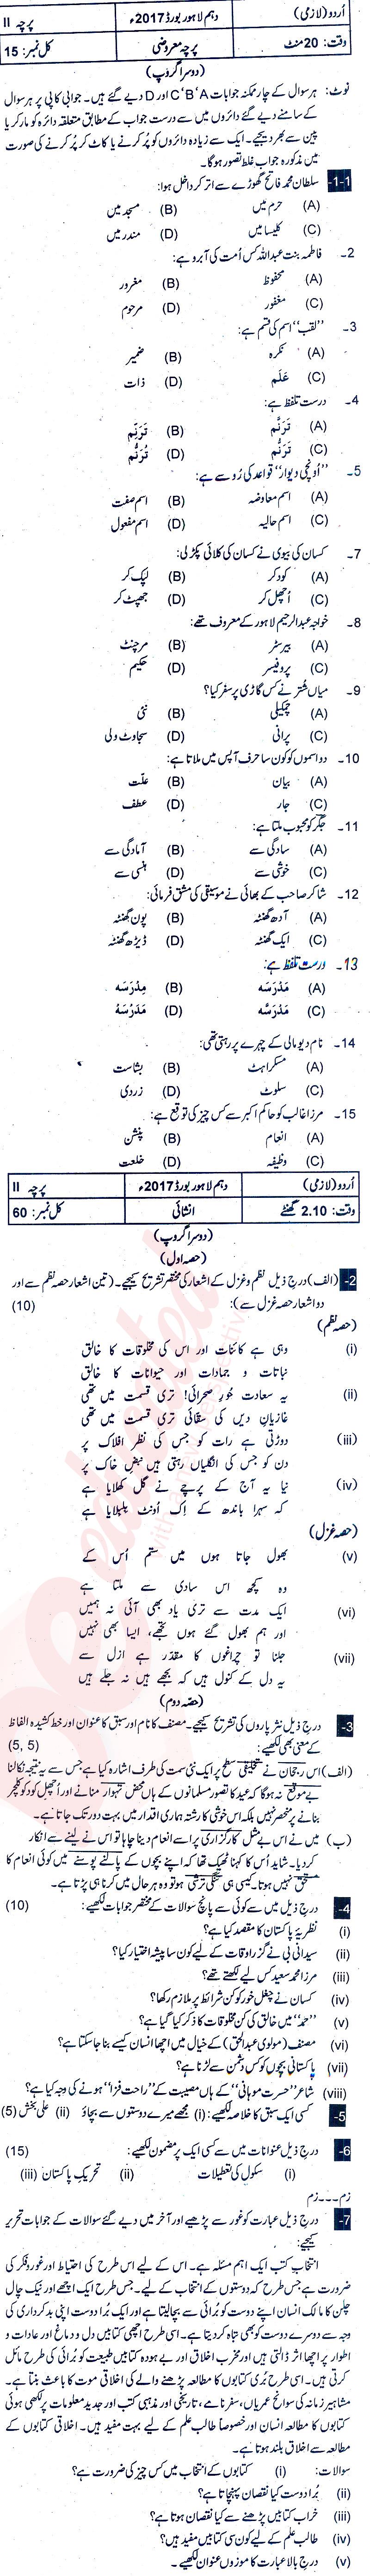 اُردو (لازمی) دہم لاہور بورڈ 2017ء پرچہ II
وقت: 20 منٹ پرچہ معروضی کل نمبر: 15
(دوسرا گروپ)
نوٹ: ہر سوال کے چار ممکنہ جوابات A'B'C اور D دیے گئے ہیں۔ جوابی کاپی پر ہر سوال
کے سامنے دیے گئے دائروں میں سے درست جواب کے مطابق متعلقہ دائرہ کو مارکر یا
پین سے بھر دیجیے۔ ایک سے زیادہ دائروں کو پُر کرنے یا کاٹ کر پُر کرنے کی صورت
میں مذکورہ جواب غلط تصور ہوگا۔
1-1- سلطان محمد فاتح گھوڑے سے اتر کر داخل ہوا:
(A) حرم میں (B) مسجد میں
(C) کلیسا میں (D) مندر میں
2- فاطمہ بنت عبداللہ کس اُمت کی آبرو ہے:
(A) محفوظ (B) مغرور
(C) مغفور (D) مرحوم
3- ''لقب'' اسم کی قسم ہے:
(A) نکرہ (B) ضمیر
(C) عَلَم (D) ذات
4- درست تلفظ ہے:
(A) تَرَنَّم (B) تَرَنِّم
(C) تَرَنُّم (D) تُرَنُّم
5- ''اُونچی دیوار'' قواعد کی رُو سے ہے:
(A) اسم معاوضہ (B) اسم صفت
(C) اسم حالیہ (D) اسم مفعول
7- کسان کی بیوی نے کسان کی کلائی پکڑ لی:
(A) کود کر (B) لپک کر
(C) اُچھل کر (D) جھپٹ کر
8- خواجہ عبدالرحیم لاہور کے معروف تھے:
(A) بیرسٹر (B) مرچنٹ
(C) پروفیسر (D) حکیم
9- میاں شُتر نے کس گاڑی پر سفر کیا؟
(A) چمکیلی (B) نئی
(C) پرانی (D) سجاوٹ ولی
10- دو اسموں کو کون سا حرف آپس میں ملاتا ہے:
(A) بیان (B) علّت
(C) جار (D) عطف
11- جگر کو محبوب ملتا ہے:
(A) سادگی سے (B) آمادگی سے
(C) خوشی سے (D) ہنسی سے
12- شاکر صاحب کے بھائی نے موسیقی کی مشق فرمائی:
(A) آدھ گھنٹہ (B) پون گھنٹہ
(C) ایک گھنٹہ (D) ڈیڑھ گھنٹہ
13- درست تلفظ ہے:
(A) مَدْرَسَہ (B) مِدْرَسَہ
(C) مَدْرَسَّہ (D) مَدْرَسُہُ
14- نام دیو مالی کے چہرے پر رہتی تھی:
(A) مسکراہٹ (B) بشاشت
(C) سلوٹ (D) زردی
15- مرزا غالب کو حاکم اکبر سے کس چیز کی توقع ہے:
(A) انعام (B) پنشن
(C) وظیفہ (D) خلعت
اُردو (لازمی) دہم لاہور بورڈ 2017ء پرچہ II
وقت: 2.10 گھنٹے انشائی کل نمبر: 60
(دوسرا گروپ)
(حصہ اول)
2- (الف) درج ذیل نظم و غزل کے اشعار کی مختصر تشریح کیجیے۔ (تین اشعار حصہ نظم سے اور
دو اشعار حصہ غزل سے): (10)
(حصہ نظم)
(i) وہی ہے کائنات اور اس کی مخلوقات کا خالق
نباتات و جمادات اور حیوانات کا خالق
(ii) یہ سعادت حُورِ صحرائی! تری قسمت میں تھی
غازیانِ دیں کی سقائی تری قسمت میں تھی
(iii) دوڑتی ہے رات کو جس کی نظر افلاک پر
دن کو جس کی انگلیاں رہتی ہیں نبضِ خاک پر
(iv) نیا یہ آج کے پرچے نے گل کھلایا ہے
کہ سہرا باندھ کے اِک اُونٹ بلبلایا ہے
(حصہ غزل)
(v) بھول جاتا ہوں میں ستم اُس کے
وہ کچھ اس سادی سے ملتا ہے
(vi) ایک مدت سے تری یاد بھی آئی نہ ہمیں
اور ہم بھول گئے ہوں تجھے، ایسا بھی نہیں
(vii) جلنا تو چراغوں کا مقدر ہے ازل سے
یہ دل کے کنول ہیں کہ بجھے ہیں نہ جلے ہیں
(حصہ دوم)
3- درج ذیل نثر پاروں کی تشریح کیجیے۔ مصنف کا نام اور سبق کا عنوان اور خط کشیدہ الفاظ
کے معنی بھی لکھیے: (5, 5)
(الف) اس رجحان نے تخلیقی سطح پر ایک نئی سمت کی طرف اشارہ کیا ہے جس سے یہ نتیجہ نکالنا
بے موقع نہ ہوگا کہ عید کا تصور مسلمانوں کے ہاں محض تہوار منانے اور اُچھل کود کو کلچر
بنانے پر منحصر نہیں بلکہ اس خوشی کا رشتہ ہماری اقدار میں بہت دور تک جاتا ہے۔
(ب) میں نے اس بے مثل کارگزاری پر اسے انعام دینا چاہا تو اس نے لینے سے انکار
کر دیا۔ شاید اُس کا کہنا ٹھیک تھا کہ اپنے بچوں کے پالنے پوسنے میں کوئی انعام کا
مستحق نہیں ہوتا۔ کیسی ہی تنگی ترشی ہو تو وہ ہر حال میں کرنا ہی پڑتا ہے۔
4- درج ذیل میں سے کوئی سے پانچ سوالات کے مختصر جوابات لکھیے: (10)
(i) نظریۂ پاکستان کا مقصد کیا ہے؟
(ii) سیدانی بی نے گزر اوقات کے لیے کون سا پیشہ اختیار کیا؟
(iii) مرزا محمد سعید کس لیے لکھتے تھے؟
(iv) کسان نے چغل خور کو کن شرائط پر ملازم رکھا؟
(v) ''حمد'' میں خالق کی کن مخلوقات کا ذکر کیا گیا ہے؟
(vi) مصنف (مولوی عبدالحق) کے خیال میں اچھا انسان کیسے بنا جاسکتا ہے؟
(vii) پاکستانی بچوں کو کس دشمن سے لڑنا ہے؟
(viii) شاعر ''حسرت موہانی'' کے ہاں مصیبت کے ''راحت فزا'' ہونے کی وجہ کیا ہے؟
5- کسی ایک سبق کا خلاصہ لکھیے: (i) مجھے میرے دوستوں سے بچاؤ (ii) علی بخش (5)
6- درج ذیل عنوانات میں سے کسی ایک پر مضمون لکھیے: (15)
(i) سکول کی تعطیلات (ii) تحریکِ پاکستان (iii)
زم۔۔۔زم
7- درج ذیل عبارت کو غور سے پڑھیے اور آخر میں دیے گئے سوالات کے جوابات تحریر
کیجیے:
انتخابِ کتب ایک اہم مسئلہ ہے۔ اس کے لیے اس طرح کی احتیاط اور غور و فکر کی
ضرورت ہے جس طرح کہ دوستوں کے انتخاب کے لیے۔ جس طرح ایک اچھے اور نیک چال
چلن کا مالک انسان اپنے دوست کو بُرائی سے بچا لیتا ہے اور ایک بُرا دوست اپنی بدکرداری کی
وجہ سے دوسرے دوست کو بھی تباہ کر دیتا ہے۔ اسی طرح اچھی کتابیں دل و دماغ اور عادات و
اطوار پر اچھا اثر ڈالتی ہیں اور مخرب اخلاق اور بے ہودہ کتابیں طبیعت کو بُرائی کی طرف مائل
کرتی ہیں۔ اسی طرح بُری کتابوں کا مطالعہ پڑھنے والے کی اخلاقی موت کا باعث بنتا ہے۔
مشاہیر زمانہ کی سوانح عمریاں، سفر نامے، تاریخی اور مذہبی کتب اور جدید معلومات پر لکھی ہوئی
کتابوں کا مطالعہ انسان اور خصوصاً طالب علم کے لیے بہت مفید ہیں۔ اخلاقی کتابوں کے
مطالعہ سے اخلاق بلند ہوتا ہے۔
سوالات: (i) کتابوں کے انتخاب میں کس چیز کی ضرورت ہے؟
(ii) بُرا دوست کیا نقصان پہنچاتا ہے؟
(iii) خراب کتابیں پڑھنے سے کیا نقصان ہوتا ہے؟
(iv) طالب علم کے لیے کون سی کتابیں مفید ہیں؟
(v) درج بالا عبارت کا موزوں عنوان لکھیے۔